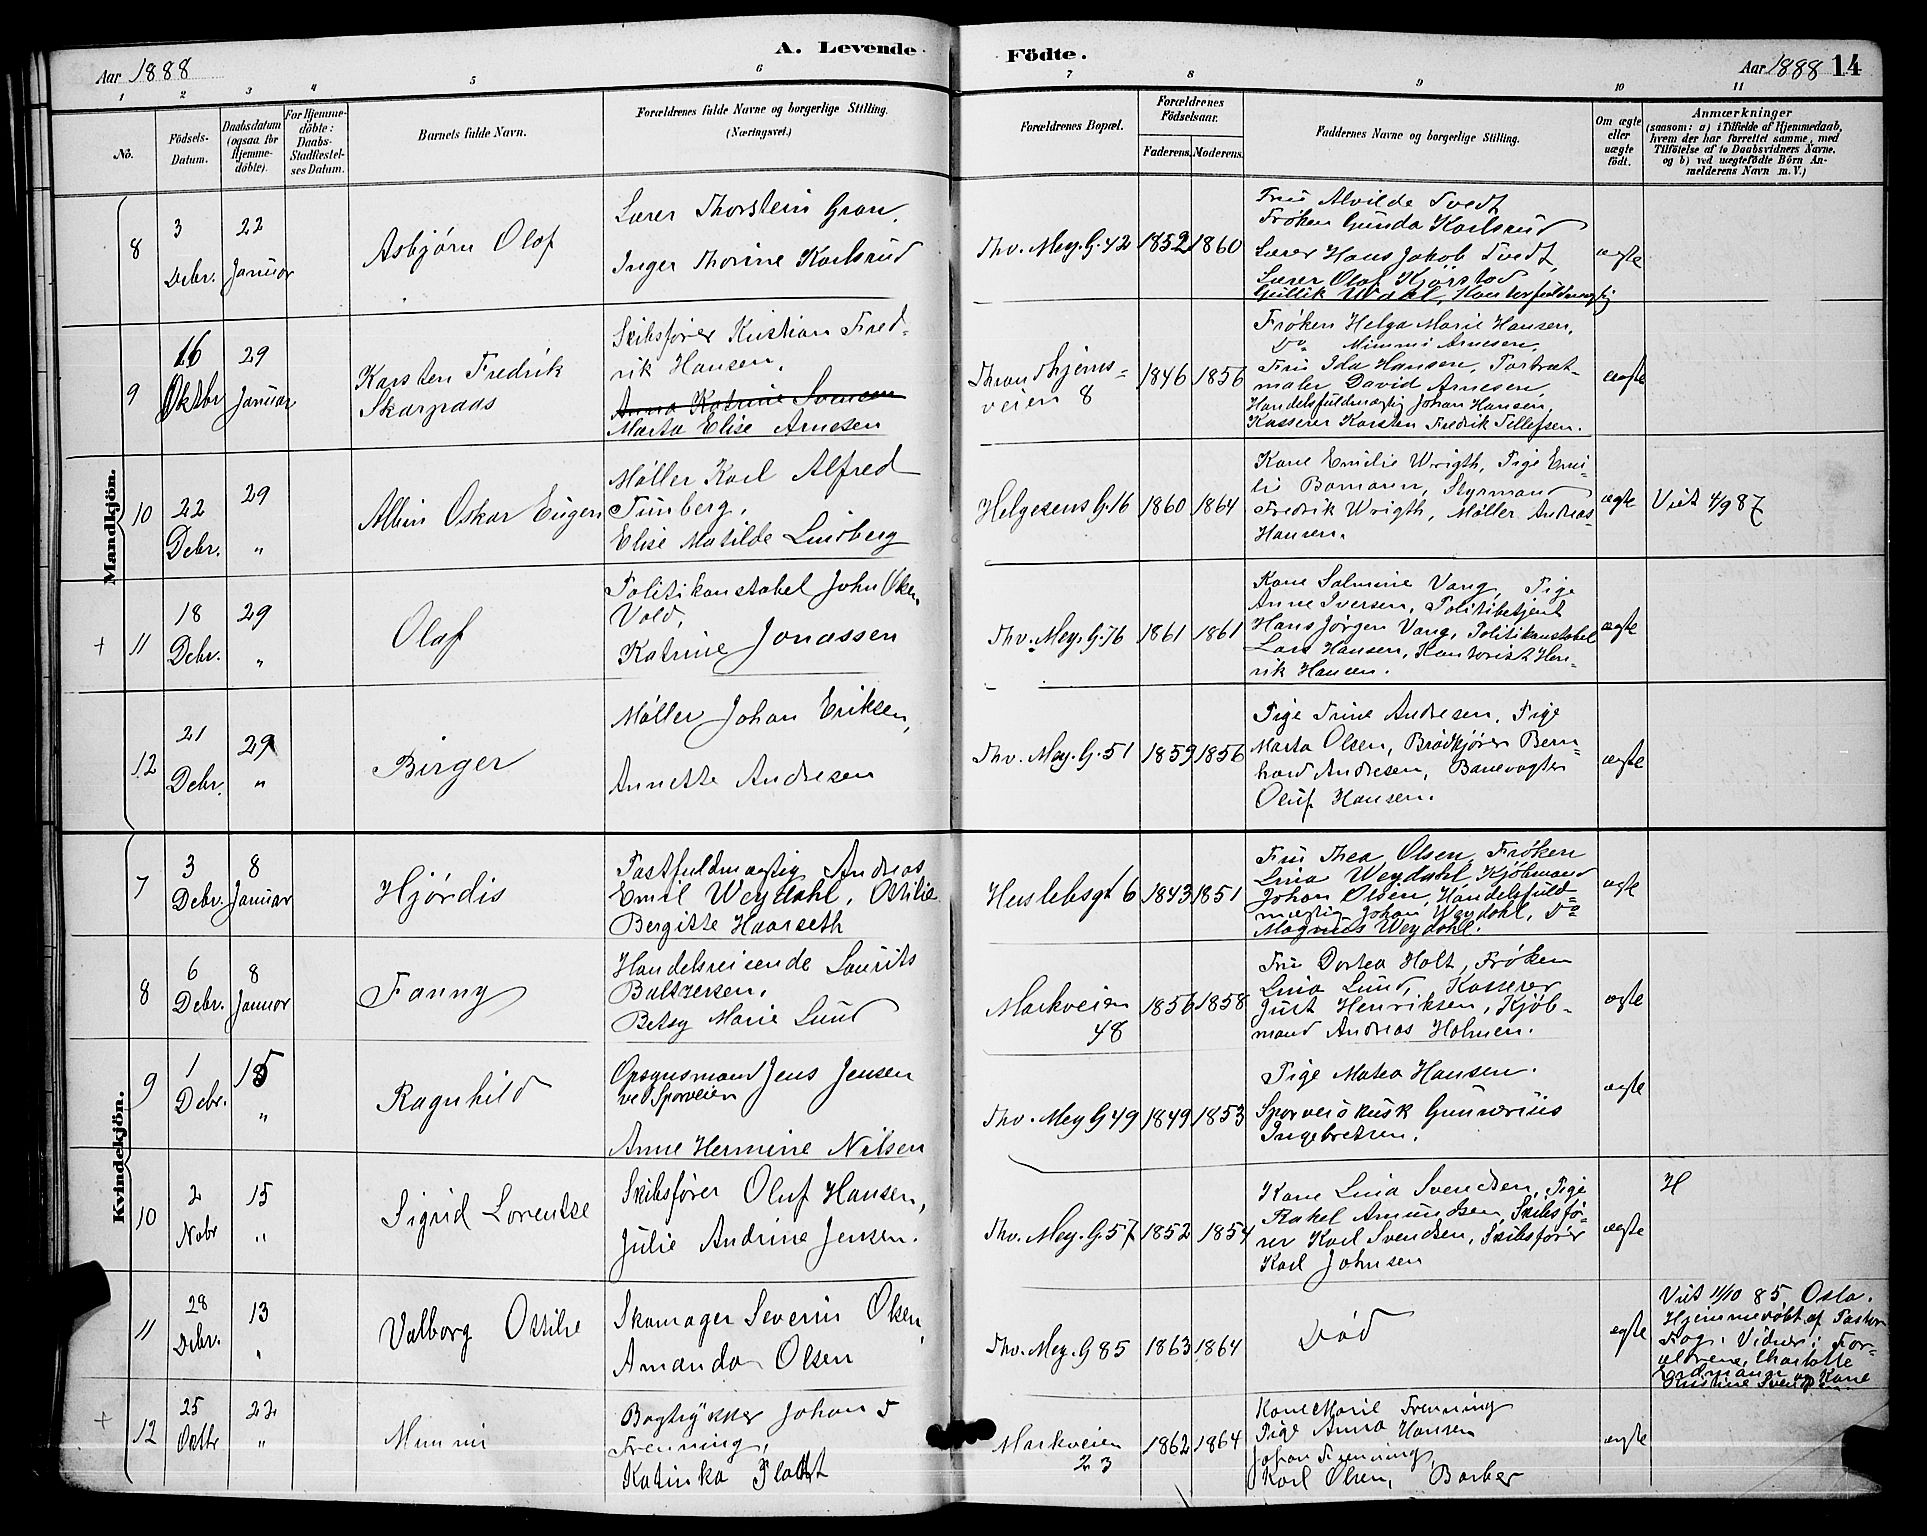 A. Levende Födte.
Aar 1888
Aar 1888 14
1 2 3 4 5 6 7 8 9 10 11
No.
Födsels-Datum.
Daabsdatum (ogsaa for Hjemme-döbte).
For Hjemme-döbte: Daabs-Stadfæstel-ses Datum.
Barnets fulde Navn.
Forældrenes fulde Navne og borgerlige Stilling. (Næringsvei.)
Forældrenes Bopæl.
Forældrenes Födselsaar.
Faderens. Moderens.
Faddernes Navne og borgerlige Stilling.
Om ægte eller uægte födt.
Anmærkninger
(saasom: a) i Tilfælde af Hjemmedaab, hvem der har forrettet samme, med Tilföielse af to Daabsvidners Navne, og b) ved uægtefödte Börn An-melderens Navn m. V.)
Mandkjön.
8
3 Debr.
22 Januar
Asbjørn Olaf
Lærer Thorstein Gran,
Inger Thorine Karlsrud
Thv. Mey. G. 42
1852 1860
Fru Alvilde Tvedt
Frøken Gunda Karlsrud
Lærer Hans Jakob Tvedt,
Lærer Olaf Kjørstad
Gullik Wahl, Kontorfuldmægtig
ægte
9
16 Oktbr
29 Januar
Karsten Fredrik
Skarpaas
Skibsfører Kristian Fred-
rik Hansen,
Anna Katrine Svensen
Marta Elise Arnesen
Throndhjems-
veien 8
1846 1856
Frøken Helga Marie Hansen,
Do Mimmi Arnesen,
Fru Ida Hansen, Portræt-
maler David Arnesen,
Handelsfuldmægtig Johan Hansen,
Kasserer Karsten Fredrik Tellefsen.
ægte
10
22 Debr.
29 "
Albin Oskar Eugen
Møller Karl Alfred
Timberg,
Elise Matilde Lindberg
Helgesens G. 16
1860 1864
Kone Emilie Wrigth, Pige Emi-
lie Bomaren, Styrmand
Fredrik Wrigth, Møller Andreas
Hansen.
ægte
Viet 4/9 87
+ 11
18 Debr.
29 "
Olaf
Politikonstabel John Olsen
Vold,
Katrine Jonassen
Thv. Mey. G. 76
1861 1861
Kone Salmine Vang, Pige
Anne Iversen, Politibetjent
Hans Jørgen Vang, Politikonstabel
Lars Hansen, Kontorist Hen-
rik Hansen.
ægte
12
21 Debr.
29 "
Birger
Møller Johan Eriksen,
Annette Andresen
Thv. Mey. G. 51
1859 1856
Pige Trine Andresen, Pige
Marta Olsen, Brødkjører Bern-
hard Andresen, Banevogter
Oluf Hansen.
ægte
Kvindekjön.
7
3 Debr.
8 Januar
Hjørdis
Postfuldmægtig Andreas
Emil Weydahl, Ottilia
Bergitte Haarseth
Heslebsgt 6
1843 1851
Fru Thea Olsen, Frøken
Lina Weydahl, Kjøbmand
Johan Olsen, Handelsfuld-
mægtig Johan Weydahl, Do
Magnus Weydahl.
ægte
8
6 Debr.
8 Januar
Fanny
Handelsreisende Laurits
Baltzersen,
Betsy Marie Lund
Markveien
48
1856 1858
Fru Dortea Holt, Frøken
Lina Lund, Kasserer
Just Henriksen, Kjøb-
mand Andreas Holmen.
ægte
9
1 Debr.
15 "
Ragnhild
Opsynsmand Jens Jensen
ved Sporveien
Anne Hermine Nilsen
Thv. Mey G 49
1849 1853
Pige Matea Hansen.
Sporveiskusk Gunnerius
Ingebretsen.
ægte
10
2 Nobr
15 "
Sigrid Lorentse
Skibsfører Oluf Hansen,
Julie Andrine Jensen.
Thv. Mey. G. 57
1852 1854
Kone Lina Svendsen, Pige
Rakel Amundsen, Skibsfø-
rer Karl Svendsen, Skibsfører
Karl Johnsen
ægte
H
11
28 Debr.
13 "
Valborg Ottilie
Skomager Severin Olsen,
Amanda Olsen
Thv. Mey. G 85
1863 1864
Død
ægte
Viet 11/10 85, Oslo.
Hjemmedøbt af Pastor
Fog. Vidner: For-
ældrene, Charlotte
Erdmann og Kone
Kristine Svendsen.
+ 12
25 Octbr
22 "
Mimmi
Bogtrykker Johan
Frenning,
Katinka Pladt
Markveien
23
1862 1864
Kone Marie Frenning
Pige Anna Hansen
Johan Frenning,
Karl Olsen, Barber
ægte